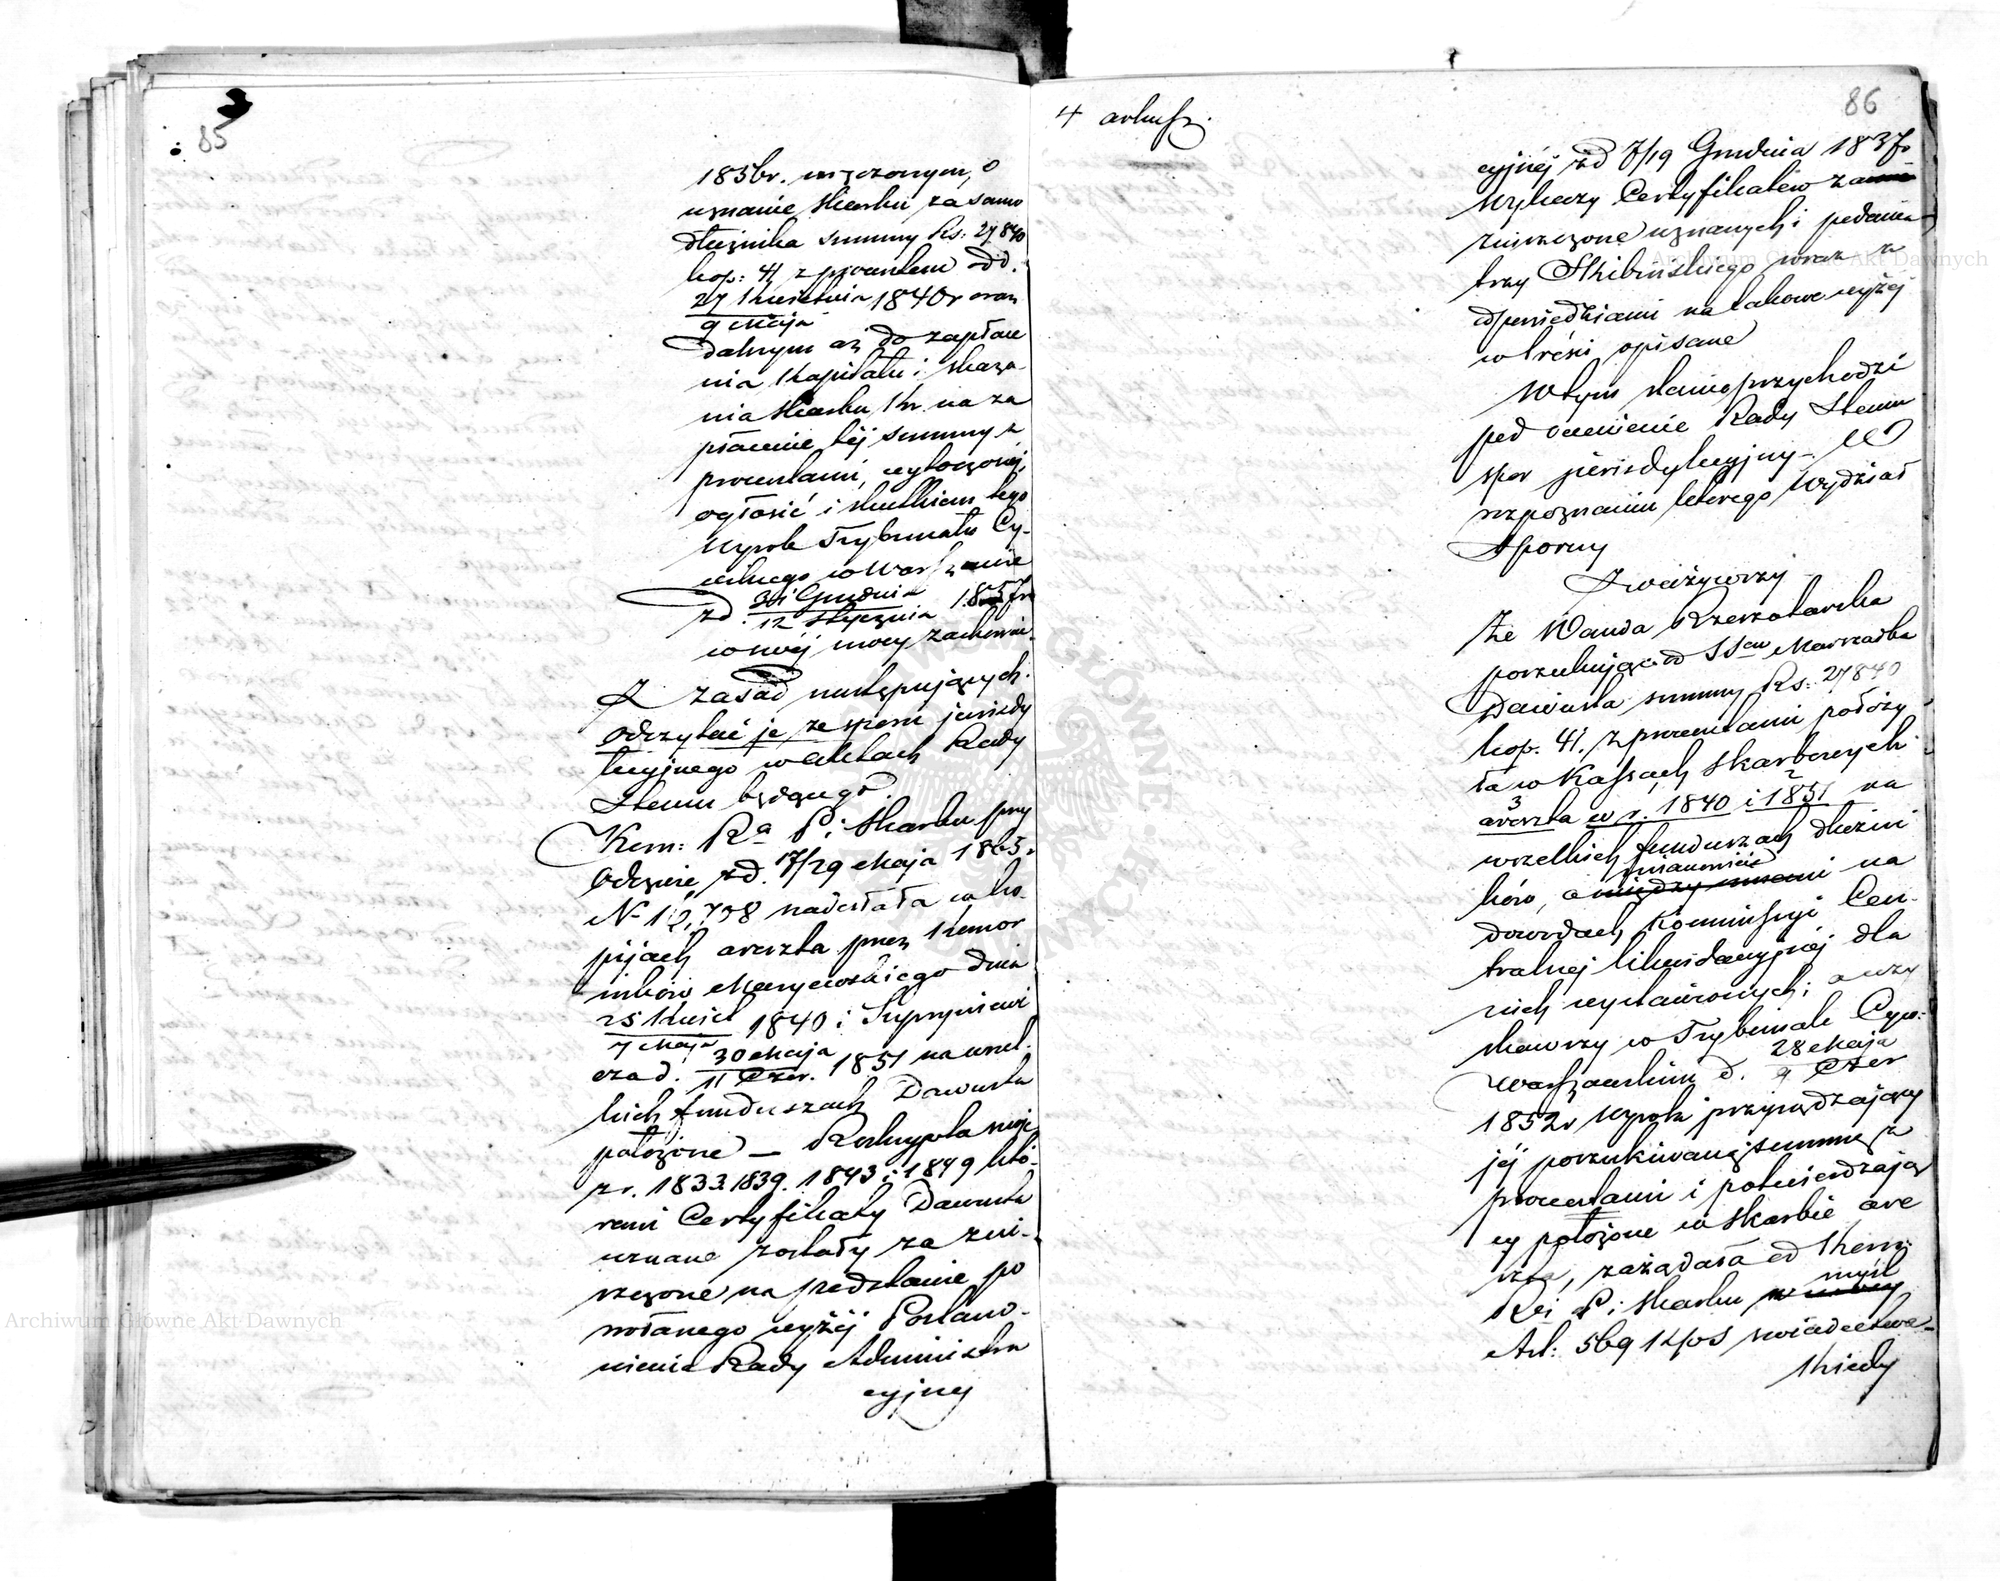 85
1856r. wręczonym, o
uznanie Skarbu za samo
dłużnika summy Rs: 27840
kop: 41 z procentem od d.
27 Kwietnia 1840r oraz
9 Maja
dalszym aż do zapłace
nia Kapitału i skaza-
nia Skarbu Kr. na za
płacenie tej summy z
procentami, wytoczonej,
ogłosić i skutkiem tego
Wyrok Trybunału Cy-
wilnego w Warszawie
zd. 31 Grudnia 1857r
12 Stycznia
w swej mocy zachować.
Z zasad następujących.
Odczytać je ze sporu jurisdy
kcyjnego w aktach Rady
Stanu będącego.
Kom: Ra P. i Skarbu przy
Odezwie zd. 17/29 Maja 1865r
No 12,738 nadesłała w ko-
pijach areszta przez Komor
ników Maryewskiego dnia
25 Kwiet 1840 i Skrypniewi
7 Maja
cza d. 30 Maja 1851 na wszel-
11 Czer.
kich funduszach Dawista
położone — Reskrypta swoje
z r. 1833. 1839. 1843 i 1849 któ-
remi Certyfikaty Dawista
uznane zostały za zni-
szczone, na podstawie po
wołanego wyżej Postano-
wienia Rady Administra
cyjnej
4 arkusz.
86
cyjnej zd 7/19 Grudnia 1837r
Wykazy Certyfikatów za
zniszczone uznanych i podania
trzy Skibińskiego wraz z
odpowiedziami na takowe wyżej
w treści opisane
W tym stanie przychodzi
pod ocenienie Rady Stanu
spór jurisdykcyjny — W
rozpoznaniu którego, Wydział
Sporny
Zważywszy
że Wanda Rzeszotarska
poszukując od SSów Marszałka
Dawista summy Rs: 27840
kop. 41. z procentami położy
ła w Kassach Skarbowych
3 2
areszta w r. 1840 i 1851 na
wszelkich funduszach dłużni
ków, a mianowicie na
dowodach Kommissyi Cen-
tralnej Likwidacyjnej dla
nich wystawionych; a uzy
skawszy w Trybunale Cyw:
Warszawskim d. 28 Maja
9 Czer
1852r Wyrok przysądzający
jej poszukiwaną summę z
procentami i potwierdzają
cy położone w Skarbie are
szta, zażądała od Kom:
Rej P. i Skarbu w myśl
Art: 569 KPS świadectwa
Kiedy